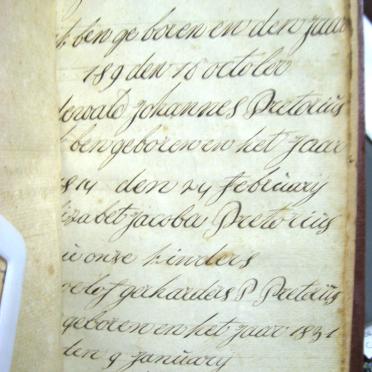 ben geboren en den Jaar
189 den 18 october
Johannes Pretorius
ben geboren en het Jaar
814 den 24 febiuarij
zabet Jacoba Pretorius
onze kinders
gerhardus P Pretorius
geboren en het Jaar 1831
den 9 January